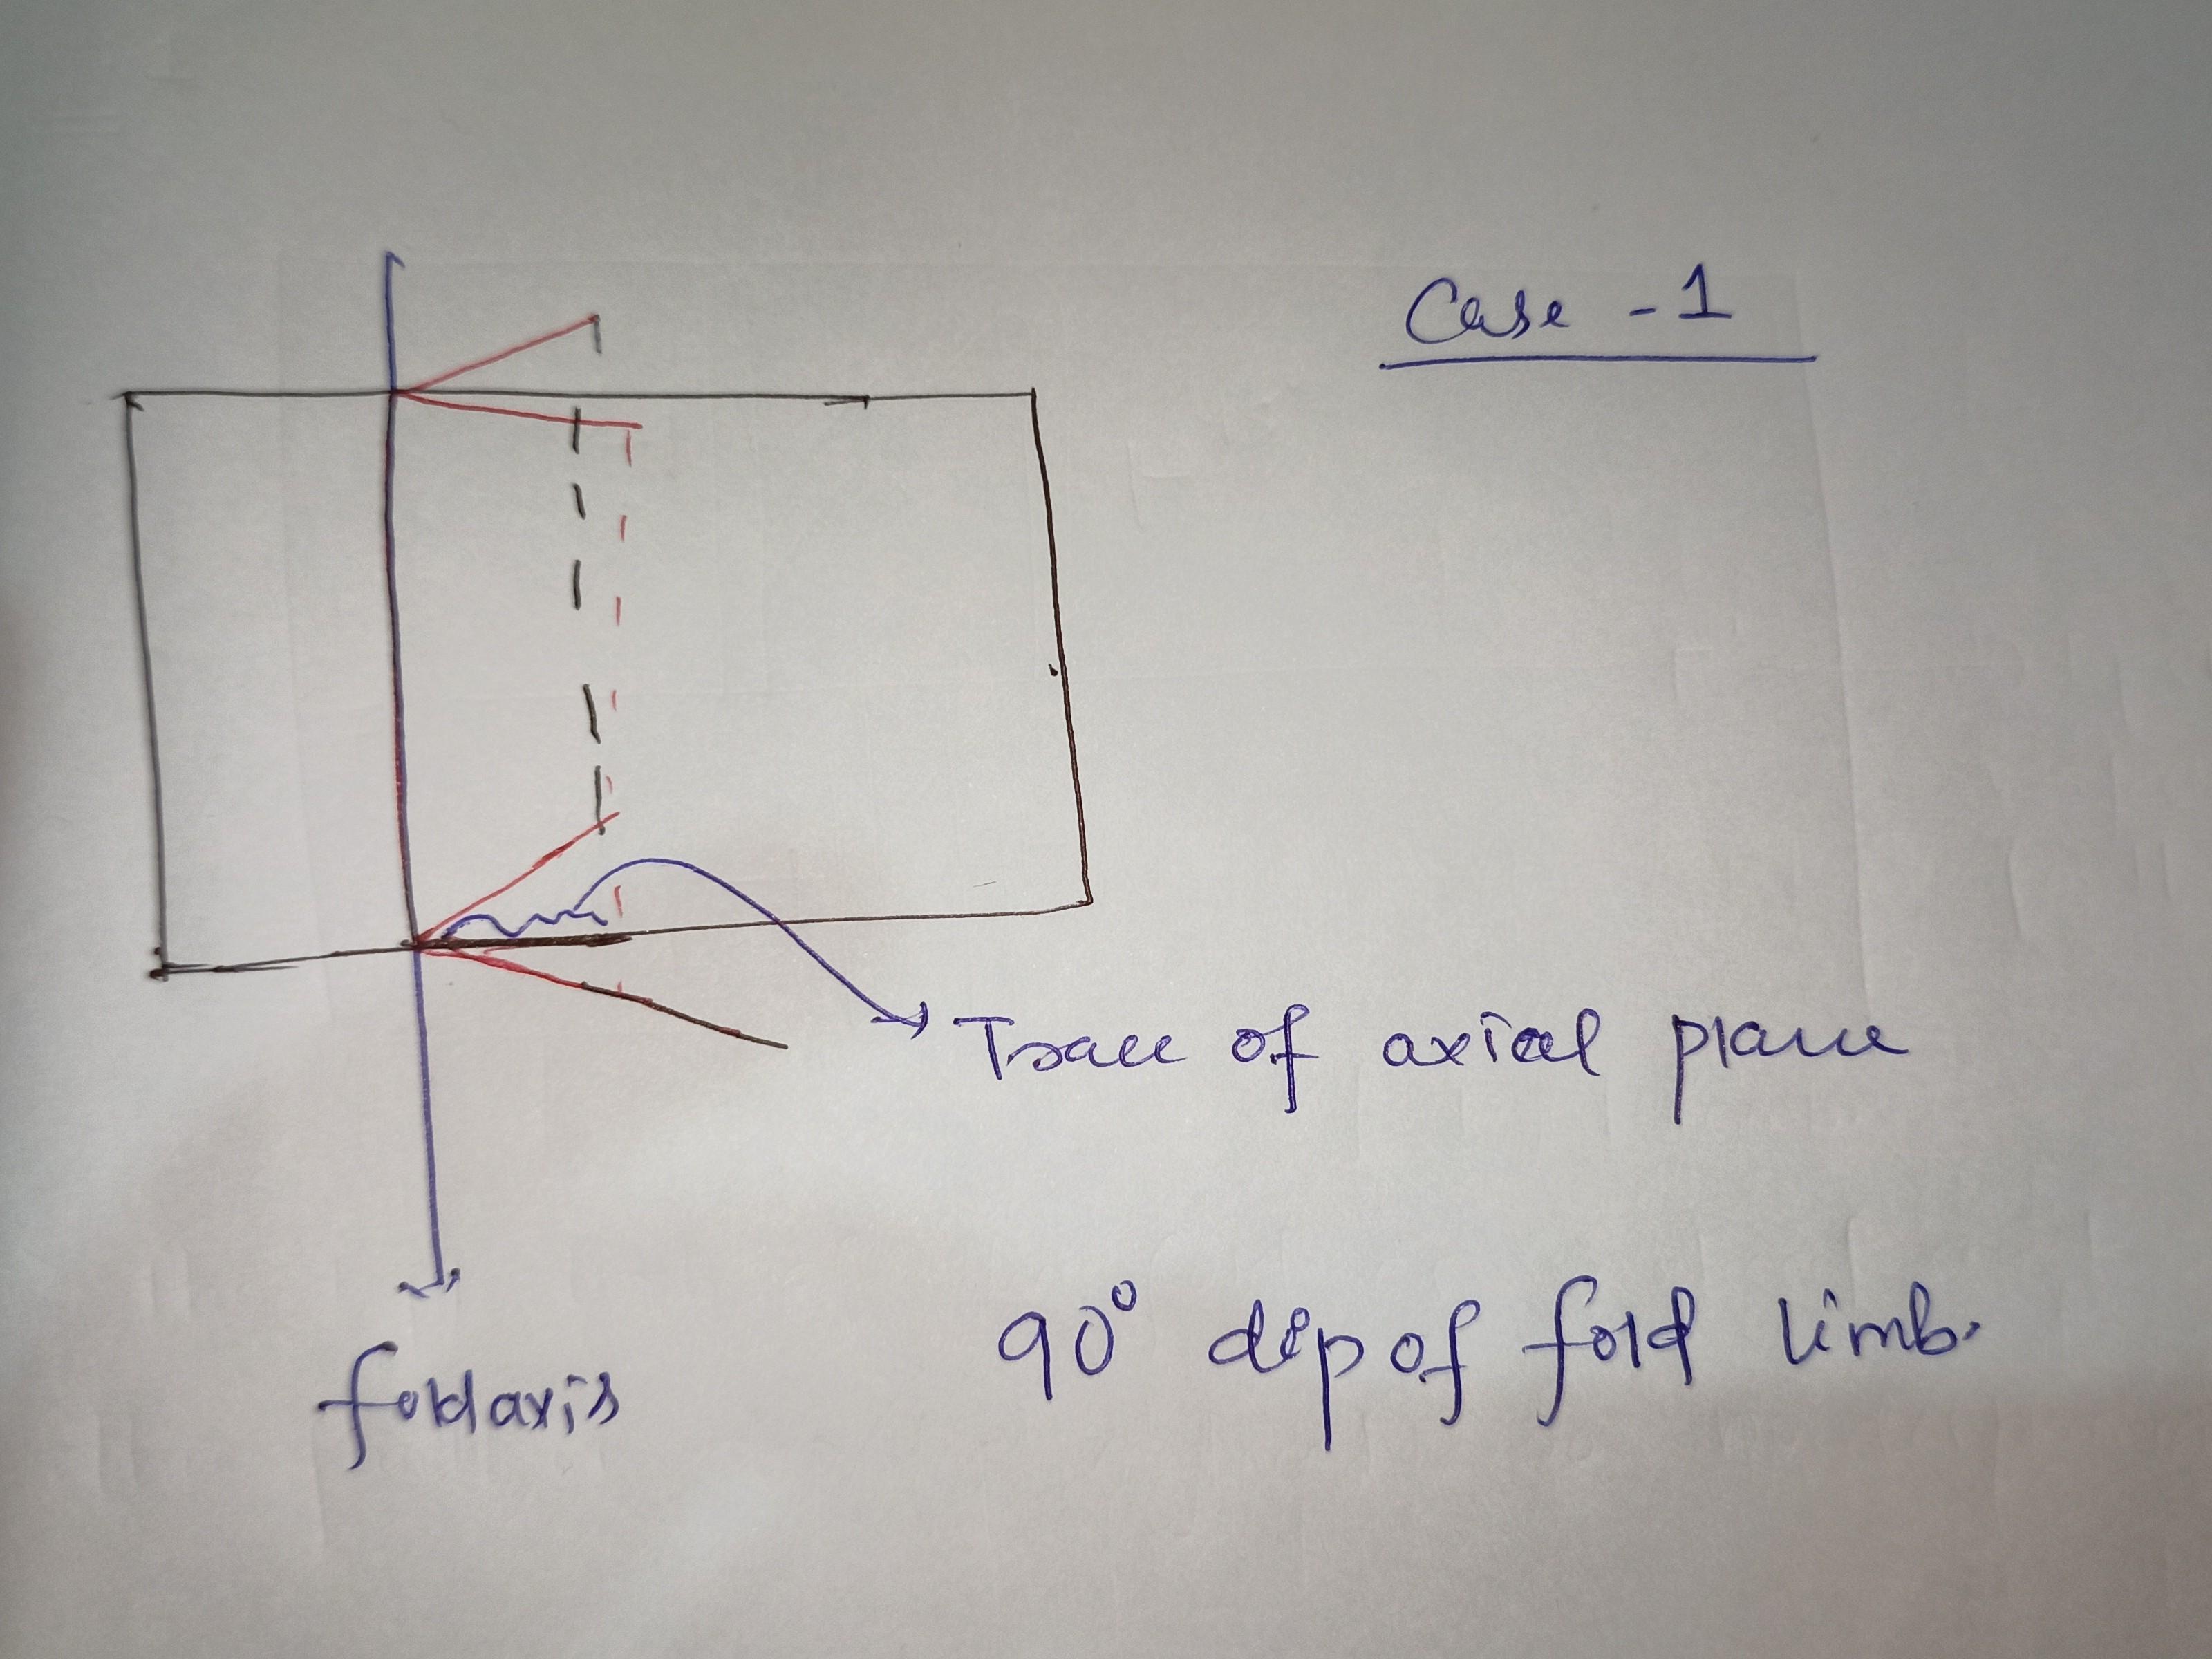 Case - 1
Trace of axial plane
90° dip of fold limb.
fold axis